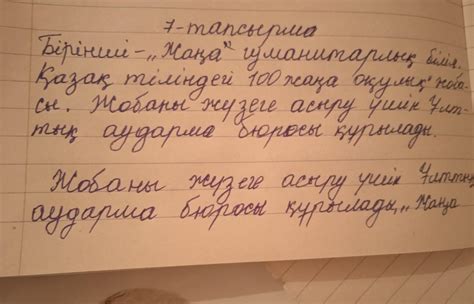 7-тапсырма
Бірінші-„Жаңа" гуманитарлық білім.
Қазақ тіліндегі 100 жаңа оқулық" жоба-
сы. Жобаны жүзеге асыру үшін Ұлт-
тық аударма бюросы құрылады.
Жобаны жүзеге асыру үшін Ұлттық
аударма бюросы құрылады,„Жаңа